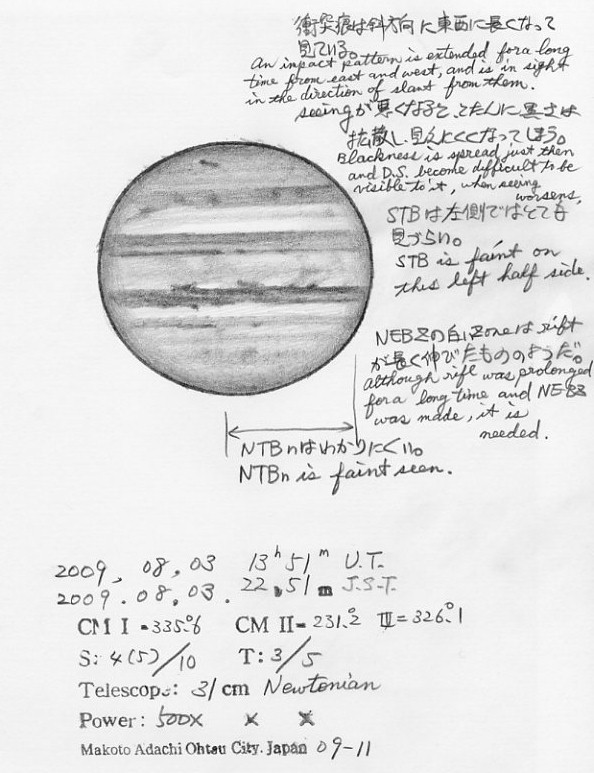 衝突痕は斜方向に東西に長くなって
見ている。
An impact pattern is extended for a long
time from east and west, and is in sight
in the direction of slant from them.
seeingが悪くなるととたんに黒さは
拡散し、見えにくくなってしまう。
Blackness is spread just then
and D.S. become difficult to be
visible to it, when seeing
worsens,
STBは左側ではとても
見づらい。
STB is faint on
this left half side.
NEBZの白いzoneはrift
が長く伸びたもののようだ。
Although rift was prolonged
for a long time and NEBZ
was made, it is
needed.
NTBnはわかりにくい。
NTBn is faint seen.
2009, 08, 03 13h 51m U.T.
2009. 08. 03. 22h 51m J.S.T.
CM I = 335.°6 CM II = 231.°2 III = 326.°1
S: 4(5)/10 T: 3/5
Telescope: 31 cm Newtonian
Power: 500X × ×
Makoto Adachi Ohtsu City. Japan 09-11